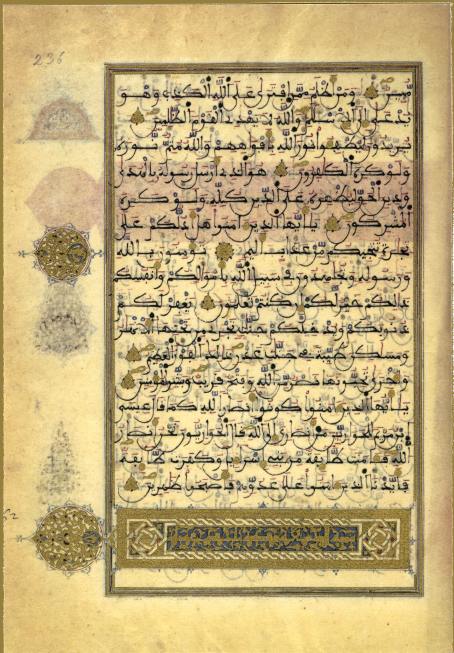 236
مبين ومن اظلم ممن افترى على الله الكذب وهو
يدعى الى الاسلم والله لا يهدي القوم الظلمين
يريدون ليطفئوا نور الله بافوههم والله متم نوره
ولو كره الكفرون هو الذي ارسل رسوله بالهدى
ودين الحق ليظهره على الدين كله ولو كره
المشركون يايها الذين امنوا هل ادلكم على
تجرة تنجيكم من عذاب اليم تومنون بالله
ورسوله وتجهدون في سبيل الله بامولكم وانفسكم
ذلكم خير لكم ان كنتم تعلمون يغفر لكم
ذنوبكم ويدخلكم جنت تجري من تحتها الانهر
ومسكن طيبة في جنت عدن ذلك الفوز العظيم
واخرى تحبونها نصر من الله وفتح قريب وبشر المومنين
يايها الذين امنوا كونوا انصارا لله كما قال عيسى
ابن مريم للحوارين من انصاري الى الله قال الحواريون نحن انصار
الله فامنت طائفة من بني اسرائل وكفرت طائفة
فايدنا الذين امنوا على عدوهم فاصبحوا ظهرين